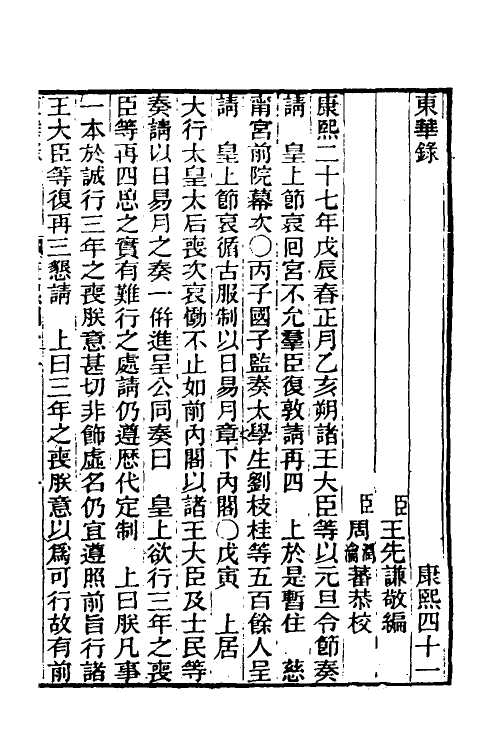 東華錄　康熙四十一
臣王先謙敬編
臣周瀹蕃潤蕃恭校
康熙二十七年戊辰春正月乙亥朔諸王大臣等以元旦令節奏
請　皇上節哀囘宮不允羣臣復敦請再四　上於是暫住　慈
甯宮前院幕次○丙子國子監奏太學生劉枝桂等五百餘人呈
請　皇上節哀循古服制以日易月章下內閣○戊寅　上居
大行太皇太后喪次哀慟不止如前內閣以諸王大臣及士民等
奏請以日易月之奏一倂進呈公同奏曰　皇上欲行三年之喪
臣等再四思之實有難行之處請仍遵歷代定制　上曰朕凡事
一本於誠行三年之喪朕意甚切非飾虛名仍宜遵照前旨行諸
王大臣等復再三懇請　上曰三年之喪朕意以爲可行故有前